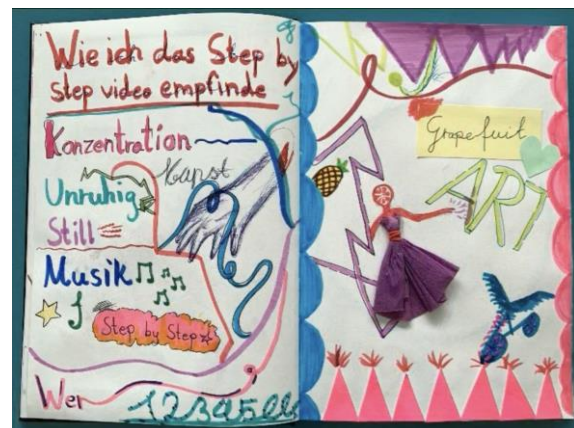 Wie ich das Step by
Step video empfinde
Konzentration
Unruhig
Still
Musik
Step by Step
Wer
Grapefuit
ART